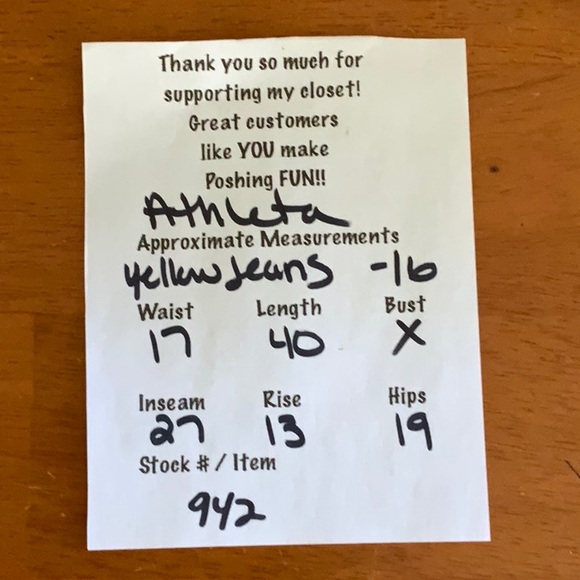 Thank you so much for
supporting my closet!
Great customers
like YOU make
Poshing FUN!!
Athleta
Approximate Measurements
yellow Jeans -16
Waist Length Bust
17 40 X
Inseam Rise Hips
27 13 19
Stock # / Item
942